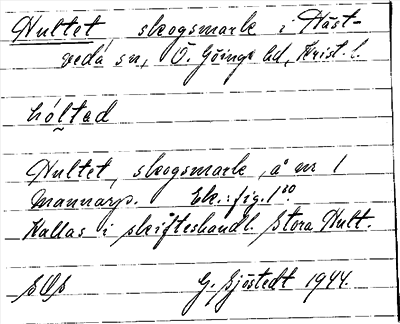 Hultet, skogsmark i Häst-
veda sn, Ö. Göinge hd, Krist. l.
hóltəd
Hultet, skogsmark, å nr 1
Mannarp. Ek.: fig. 1⁰⁰.
Kallas i skifteshandl. Stora Hult.
G. Sjöstedt 1944.